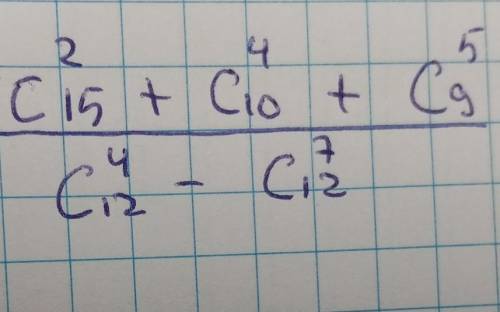 C₁₅² + C₁₀⁴ + C₉⁵
C₁₂⁴ - C₁₂⁷